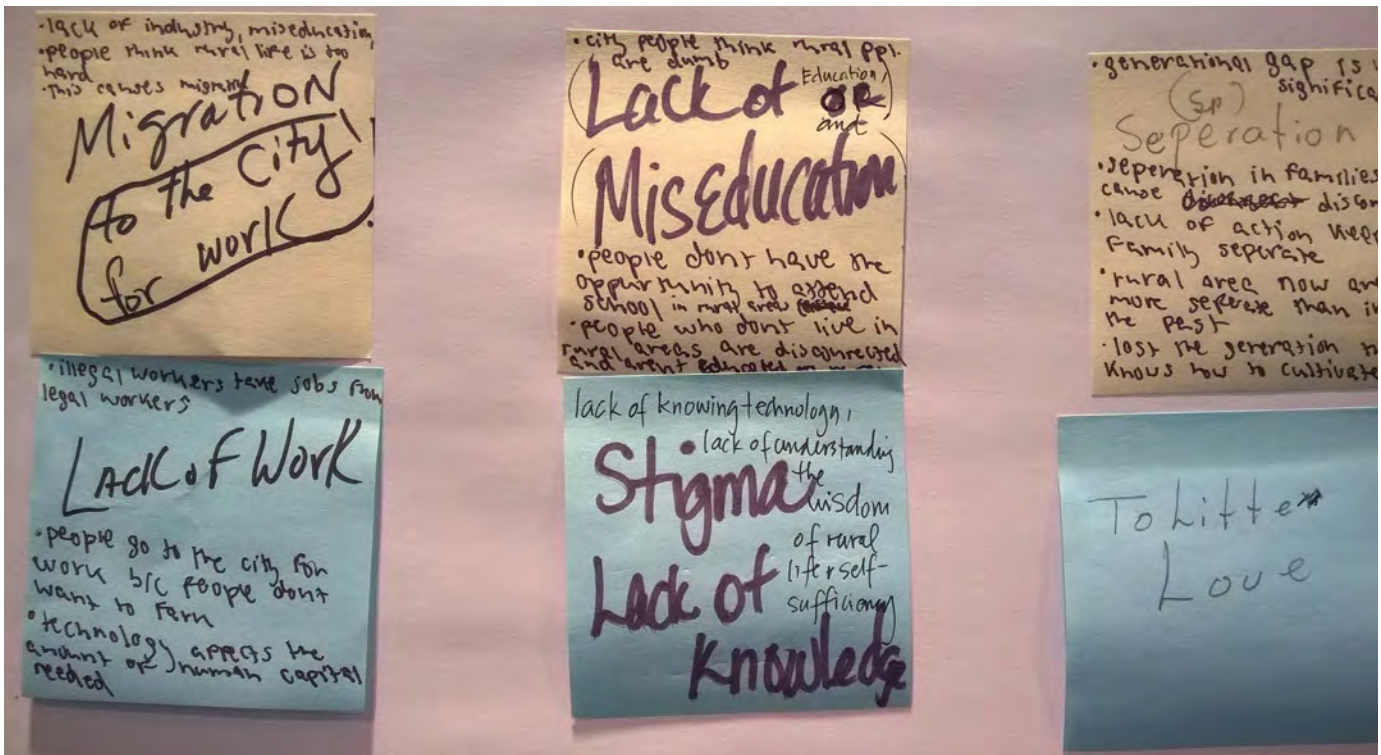 •lack of industry, miseducation,
•people think rural life is too
hard
•This causes migration
Migration
to the City
for work
•illegal workers take jobs from
legal workers
Lack of Work
•people go to the city for
work b/c people don't
want to farm
•technology affects the
amount of human capital
needed
•city people think rural ppl.
are dumb
(Lack of Education, OR
and
(Miseducation)
•people dont have the
oppurtunity to attend
school in rural area
•people who dont live in
rural areas are disconnected
and arent educated on
lack of knowing technology,
lack of understanding
Stigma the
wisdom
of rural
life & self-
Lack of sufficiency
Knowledge
•generational gap is
(sp)
Seperation
•seperation in families
cause
•lack of action
Family seperate
•rural area now
more seperate than in
the past
•lost the generation
Knows how to cultivate
To Little
Love